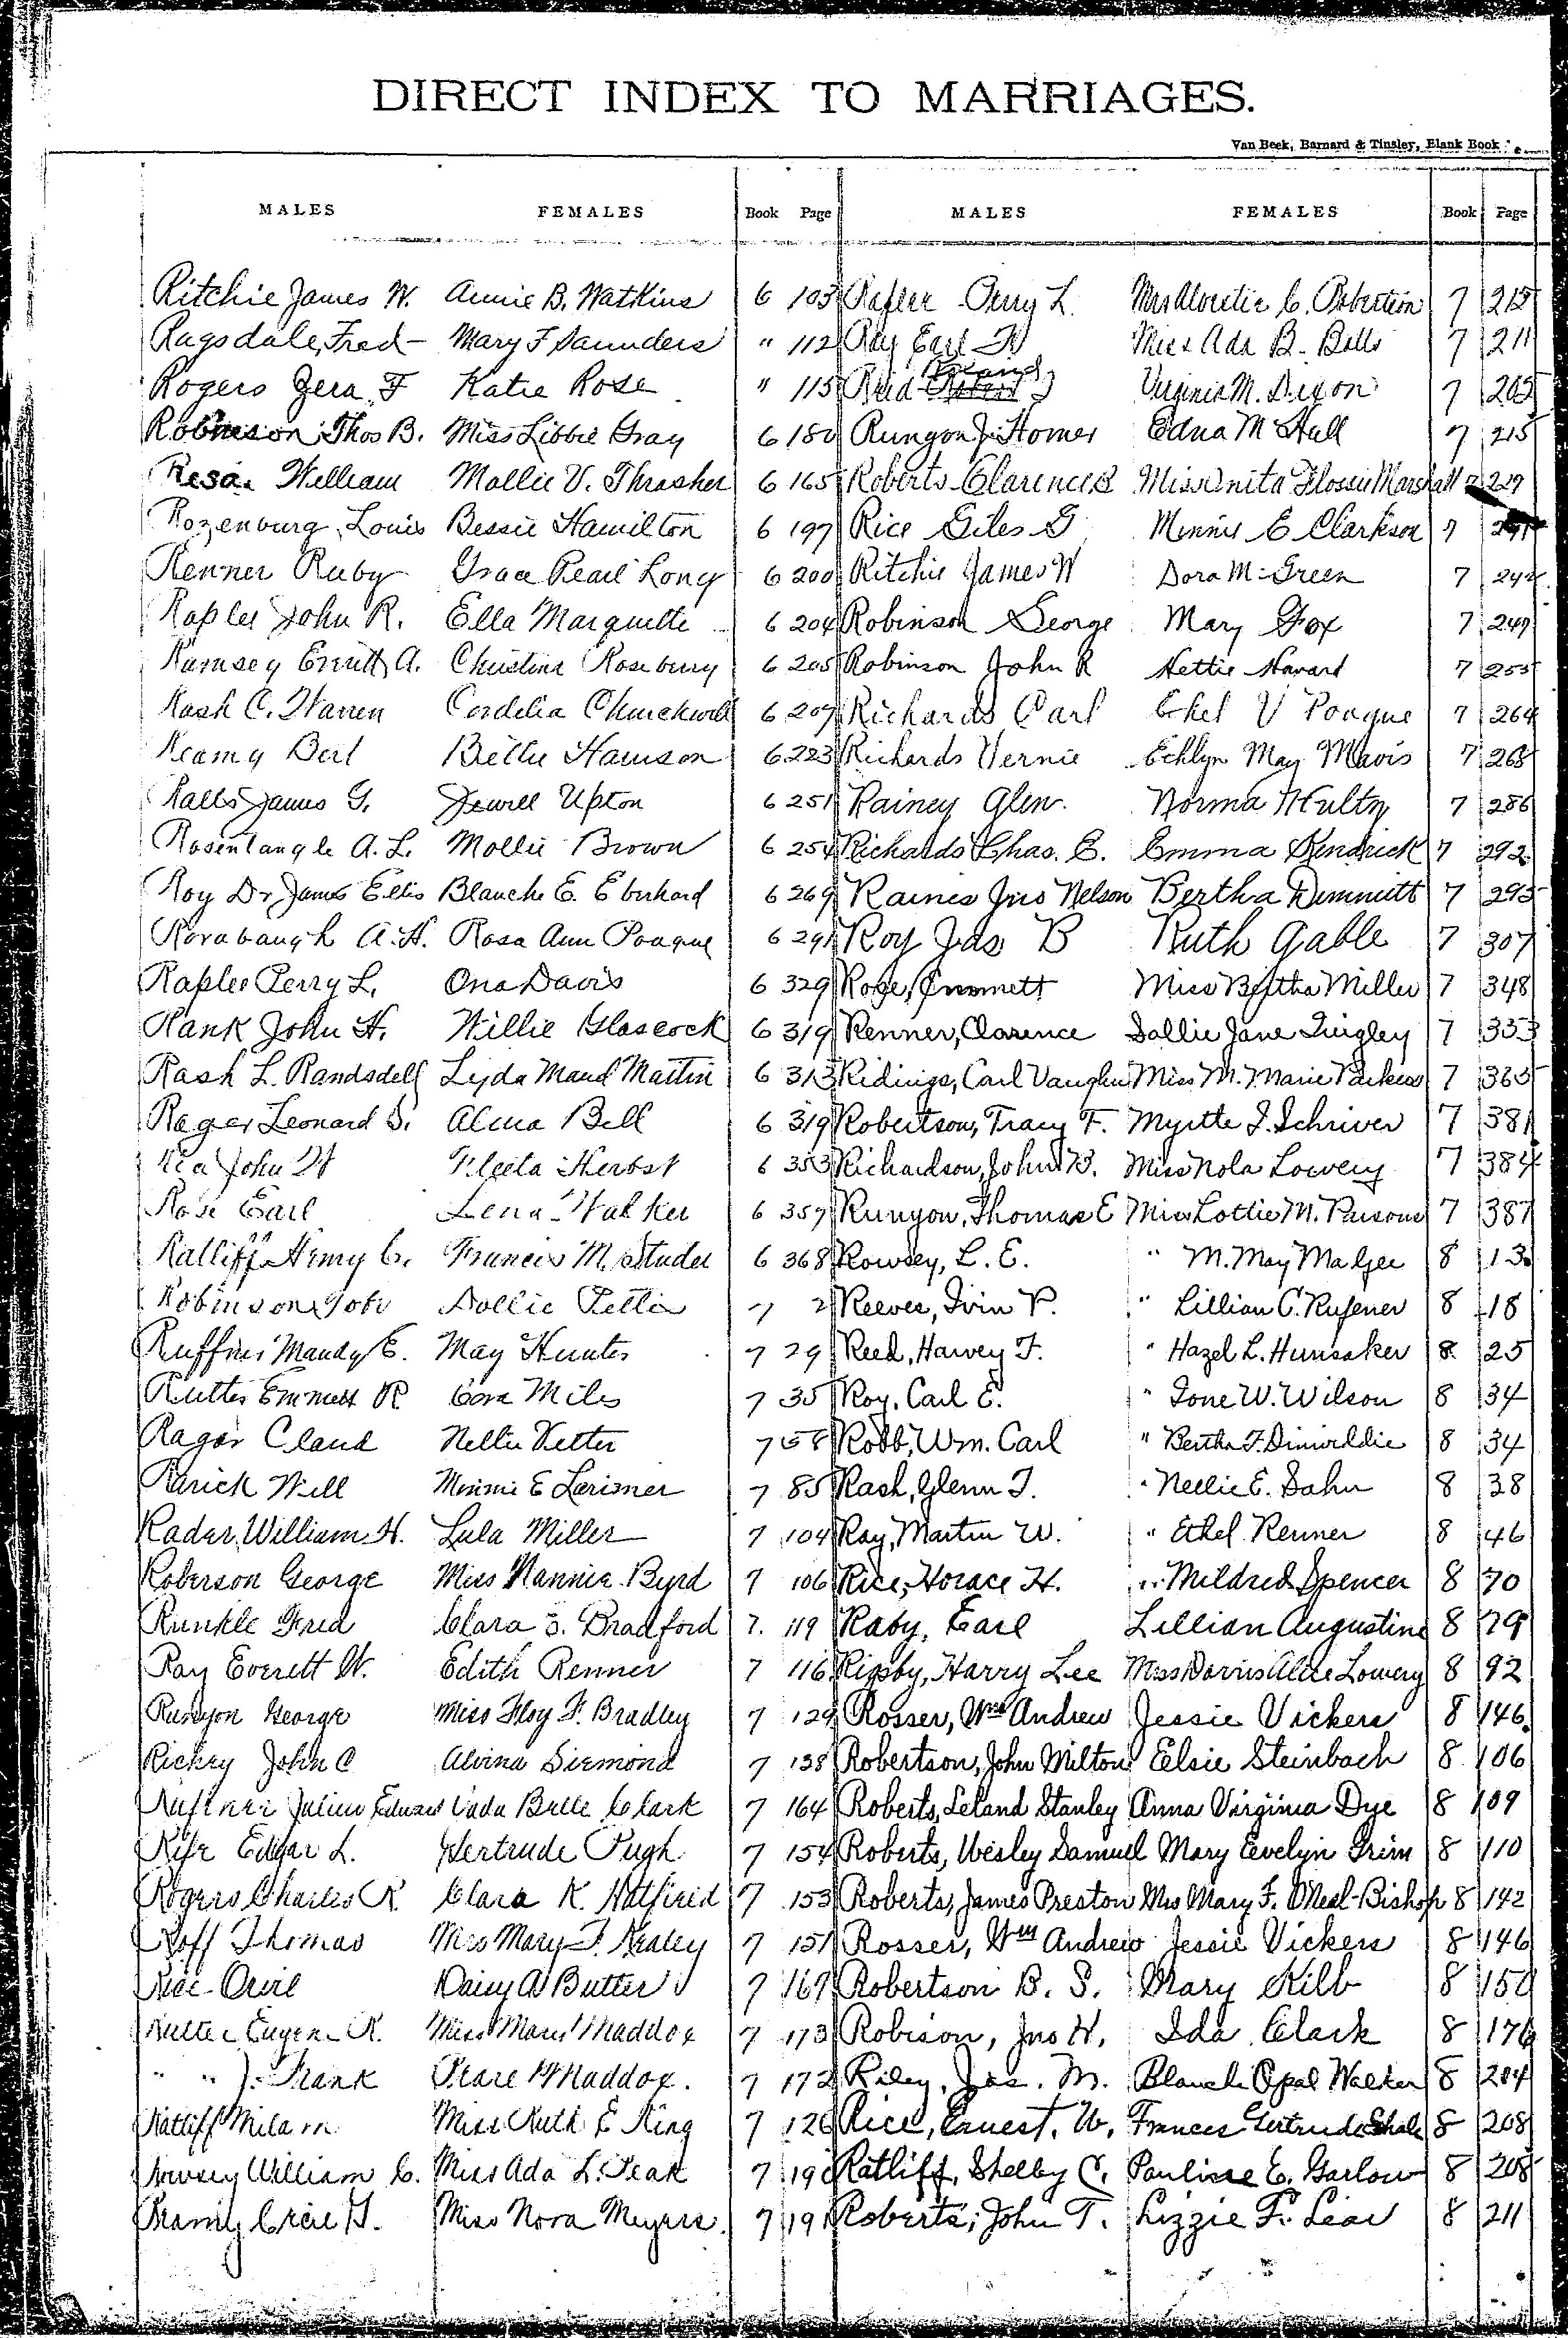 DIRECT INDEX TO MARRIAGES.
Van Beek, Barnard & Tinsley, Blank Book
MALES FEMALES Book Page MALES FEMALES Book Page
Ritchie James W. Annie B. Watkins 6 103 Perry L. Mrs C. Robertson 7 215
Ragsdale, Fred Mary F Saunders " 112 Ray Earl Miss Ada B. Bells 7 211
Rogers Zera F Katie Rose " 115 Reid Virginia M. Dixon 7 205
Robinson Thos B. Miss Libbie Gray 6 180 Runyon J. Homer Edna M Hall 7 215
Resa. William Mollie V. Thrasher 6 165 Roberts Clarence B Miss Anita Flossie Marshall 7 229
Rozenburg, Louis Bessie Hamilton 6 197 Rice Giles G Minnie E Clarkson 7
Renner Ruby Grace Pearl Long 6 200 Ritchie James W Dora M. Green 7 242
Raples John R. Ella Marquette 6 204 Robinson George Mary Fox 7 249
Ramsey Everett A. Christina Roseberry 6 205 Robinson John R Hettie Havard 7 253
Rash C. Warren Cordelia Churchwell 6 207 Richards Carl Ethel V Poague 7 264
Reamy Bert Bettie Harrison 6 223 Richards Vernie Echlyn May Mavis 7 268
Ralls James G. Jewell Upton 6 251 Rainey Glen. Norma Hultz 7 286
Rosentangle A. L. Mollie Brown 6 254 Richards Chas. E. Emma Kendrick 7 292
Roy Dr James Ellis Blanche E. Eberhard 6 269 Raines Jno Nelson Bertha Dimmitt 7 295
Rorabaugh A. H. Rosa Ann Poague 6 291 Roy Jas B Ruth Gable 7 307
Raples Perry L. Ona Davis 6 329 Rose, Emmett Miss Bertha Miller 7 348
Rank John H. Willie Glascock 6 319 Renner, Clarence Sallie Jane Quigley 7 353
Rash L. Randsdell Lyda Maud Martin 6 313 Ridings, Carl Vaughn Miss M. Marie Parkess 7 365
Rager Leonard S. Alma Bell 6 319 Robertson, Tracy F. Myrtle I. Schriver 7 381
Rea John W Fleeta Herbst 6 353 Richardson, John B. Miss Nola Lowery 7 384
Rose Earl Lena Walker 6 357 Runyon, Thomas E Miss Lottie M. Parsons 7 387
Ratliff Henry C. Francis M. Studer 6 368 Rowsey, L. E. " M. May Magee 8 13
Robinson Dollie 7 2 Reeves, Irvin P. " Lillian C. Rufener 8 18
Ruffner Mandy E. May Hunter 7 29 Reed, Harvey F. " Hazel L. Hunsaker 8 25
Rutter Emmett R Cora Miles 7 35 Roy, Carl E. " Ione W. Wilson 8 34
Ragar Claud Nellie Vetter 7 58 Robb, Wm. Carl " Bertha F. Dinwiddie 8 34
Rarick Will Minnie E Lorimer 7 85 Rash, Glenn T. " Nellie E. Sahn 8 38
Rader, William H. Lula Miller 7 104 Ray, Martin W. " Ethel Renner 8 46
Roberson George Miss Nannie Byrd 7 106 Rice, Horace H. " Mildred Spencer 8 70
Runkle Fred Clara S. Bradford 7. 119 Raby, Earl Lillian Augustine 8 79
Ray Everett W. Edith Renner 7 116 Rigsby, Harry Lee Miss Dorris Alice Lowery 8 92
Runyon George Miss Floy F. Bradley 7 129 Rosser, Wm Andrew Jessie Vickers 8 146
Rickey John C Alvina Sirmond 7 138 Robertson, John Milton Eelsie Steinbach 8 106
Ruffner Julius Edward Vada Belle Clark 7 164 Roberts, Leland Stanley Anna Virginia Dye 8 109
Rife Edgar L. Gertrude Pugh 7 154 Roberts, Wesley Samuel Mary Eevelyn Grim 8 110
Rogers Charles R. Clara K. Hatfield 7 153 Roberts, James Preston Mrs Mary F. O'Neal-Bishop 8 142
Roff Thomas Miss Mary F. Nealey 7 151 Rosser, Wm Andrew Jessie Vickers 8 146
Rice Orvil Daisy A Butler 7 167 Robertson B. S. Mary Kilb 8 150
Rutter Eugene R. Miss Mary Maddox 7 173 Robison, Jno H. Ida Clark 8 176
" " J. Frank Pearl M Maddox. 7 172 Riley, Jas. M. Blanch Opal Walker 8 204
Ratliff Milam Miss Ruth E King 7 126 Rice, Ernest. W. Frances Gertrude 8 208
Rowsey William C. Miss Ada L. Peak 7 190 Ratliff, Shelby C. Pauline E. Garlow 8 208
Reamy Miss Nora Meyers. 7 191 Roberts, John T. Lizzie F. Lear 8 211